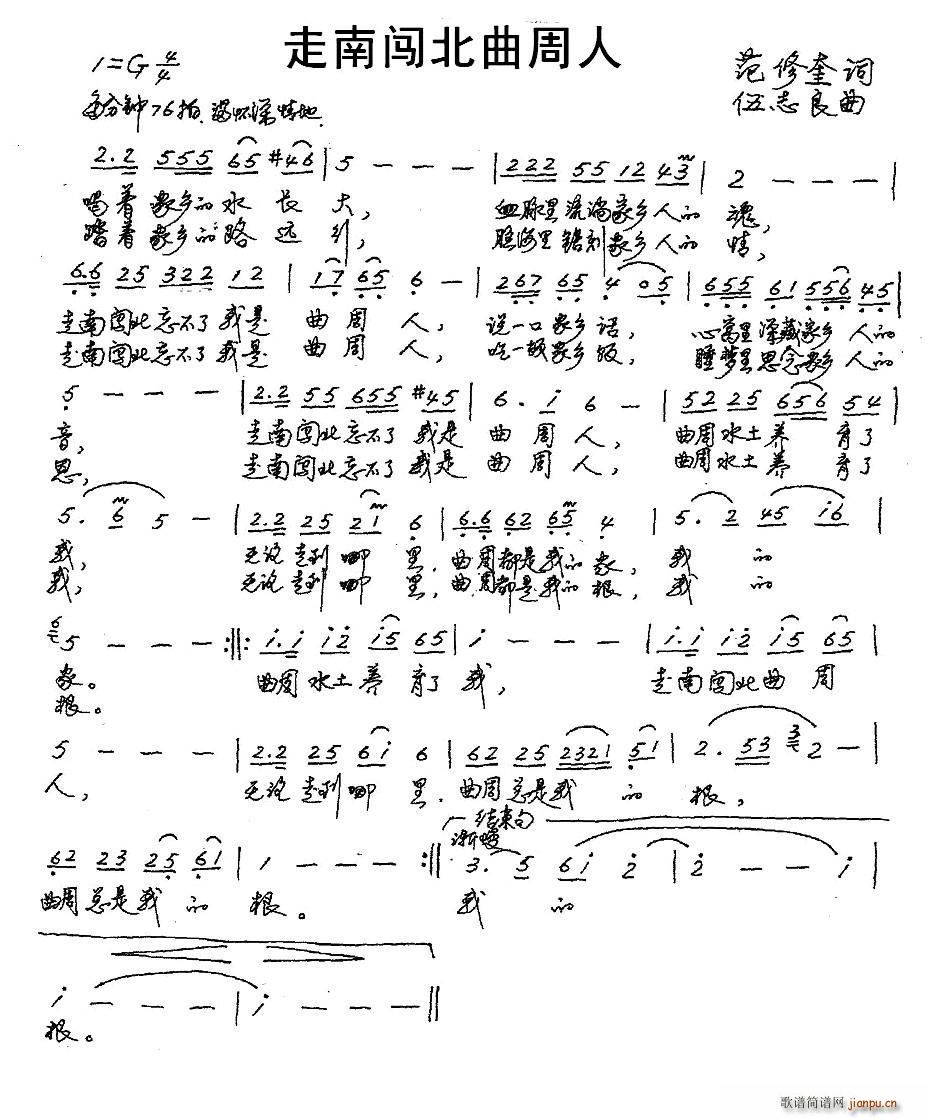 走南闯北曲周人
1=G 4/4
范修奎词
每分钟76拍 满怀深情地
伍志良曲
2.2 555 65 #46 | 5 - - - | 222 55 12 43 | 2 - - - |
喝着家乡的水长大, 血脉里流淌家乡人的魂,
踏着家乡的路远行, 脑海里镌刻家乡人的情,
6.6 25 322 12 | 17 65 6 - | 267 65 4 05 | 655 61 556 45 |
走南闯北忘不了我是曲周人, 说一口家乡话, 心窝里深藏家乡人的
走南闯北忘不了我是曲周人, 吃一顿家乡饭, 睡梦里思念家乡人的
5 - - - | 2.2 55 655 #45 | 6. i 6 - | 52 25 656 54 |
音, 走南闯北忘不了我是曲周人, 曲周水土养育了
恩, 走南闯北忘不了我是曲周人, 曲周水土养育了
5. 6 5 - | 2.2 25 21 6 | 6.6 62 65 4 | 5. 2 45 i6 |
我, 无论走到哪里, 曲周都是我的家, 我的
我, 无论走到哪里, 曲周都是我的根, 我的
6 5 - - - :||: i.i i2 i5 65 | i - - - | i.i i2 i5 65 |
家。 曲周水土养育了我, 走南闯北曲周
根。
5 - - - | 2.2 25 6i 6 | 62 25 2321 51 | 2. 53 3 2 - |
人, 无论走到哪里, 曲周总是我的根,
结束句
渐慢
62 23 25 61 | 1 - - - :|| 3. 5 6i 2 | 2 - - i |
曲周总是我的根。 我的
i - - - | i - - - ||
根。
歌谱简谱网
jianpu.cn